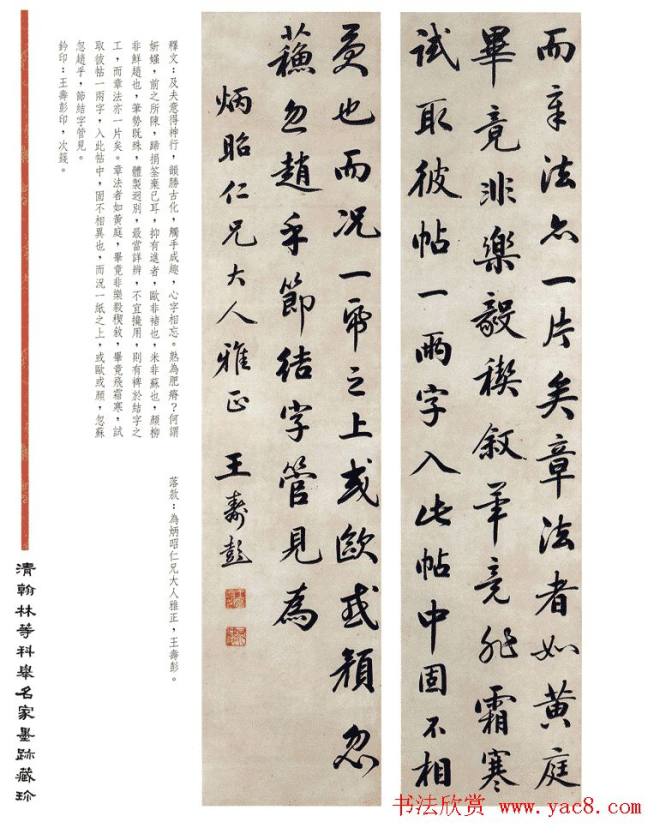 而章法亦一片矣章法者如黃庭
畢竟非樂毅禊敘畢竟非霜寒
試取彼帖一兩字入此帖中固不相
異也而況一帋之上或歐或顏忽
蘇忽趙乎節結字管見為
炳昭仁兄大人雅正 王壽彭
釋文：及夫意得神行，韻勝古化，觸手成趣，心字相忘。孰為肥瘠？何謂
妍媸，前之所陳，蹄捐筌棄已耳，抑有進者，歐非褚也，米非蘇也，顏柳
非鮮趙也，筆勢既殊，體製迥別，最當詳辨，不宜攙用，則有裨於結字之
工，而章法亦一片矣。章法者如黃庭，畢竟非樂毅禊敘，畢竟飛霜寒，試
取彼帖一兩字，入此帖中，固不相異也，而況一紙之上，或歐或顏，忽蘇
忽趙乎，節結字管見。
鈐印：王壽彭印，次籛。
落款：為炳昭仁兄大人雅正，王壽彭。
清翰林等科舉名家墨跡藏珍
书法欣赏 www.yac8.com